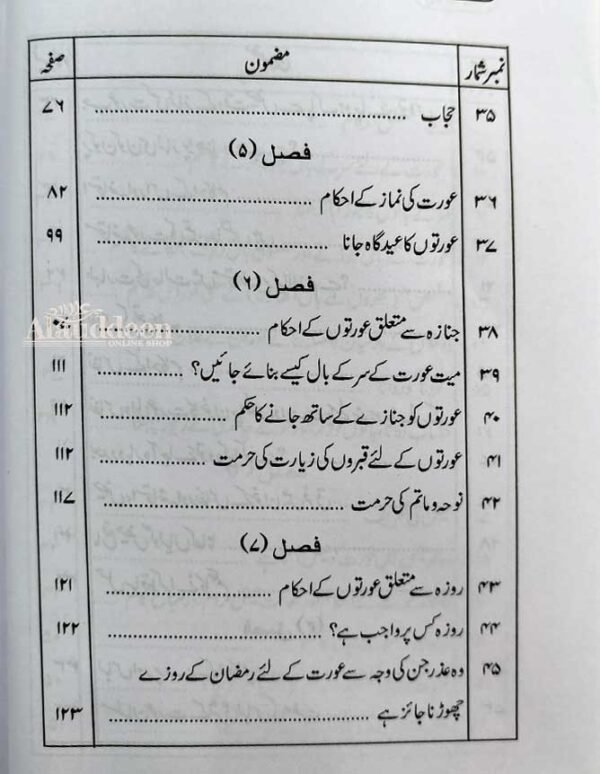 نمبر شمار مضمون صفحہ
۳۵ حجاب ........................................ ۷۶
فصل (۵)
۳۶ عورت کی نماز کے احکام ........................................ ۸۲
۳۷ عورتوں کا عید گاہ جانا ........................................ ۹۹
فصل (۶)
۳۸ جنازہ سے متعلق عورتوں کے احکام ........................................
Alauddeen
ONLINE SHOP
۳۹ میت عورت کے سر کے بال کیسے بنائے جائیں؟ .................... ۱۱۱
۴۰ عورتوں کو جنازے کے ساتھ جانے کا حکم .................... ۱۱۲
۴۱ عورتوں کے لئے قبروں کی زیارت کی حرمت .................... ۱۱۲
۴۲ نوحہ و ماتم کی حرمت ........................................ ۱۱۷
فصل (۷)
۴۳ روزہ سے متعلق عورتوں کے احکام .............................. ۱۲۱
۴۴ روزہ کس پر واجب ہے؟ ........................................ ۱۲۲
۴۵ وہ عذر جن کی وجہ سے عورت کے لئے رمضان کے روزے
چھوڑنا جائز ہے ........................................ ۱۲۳